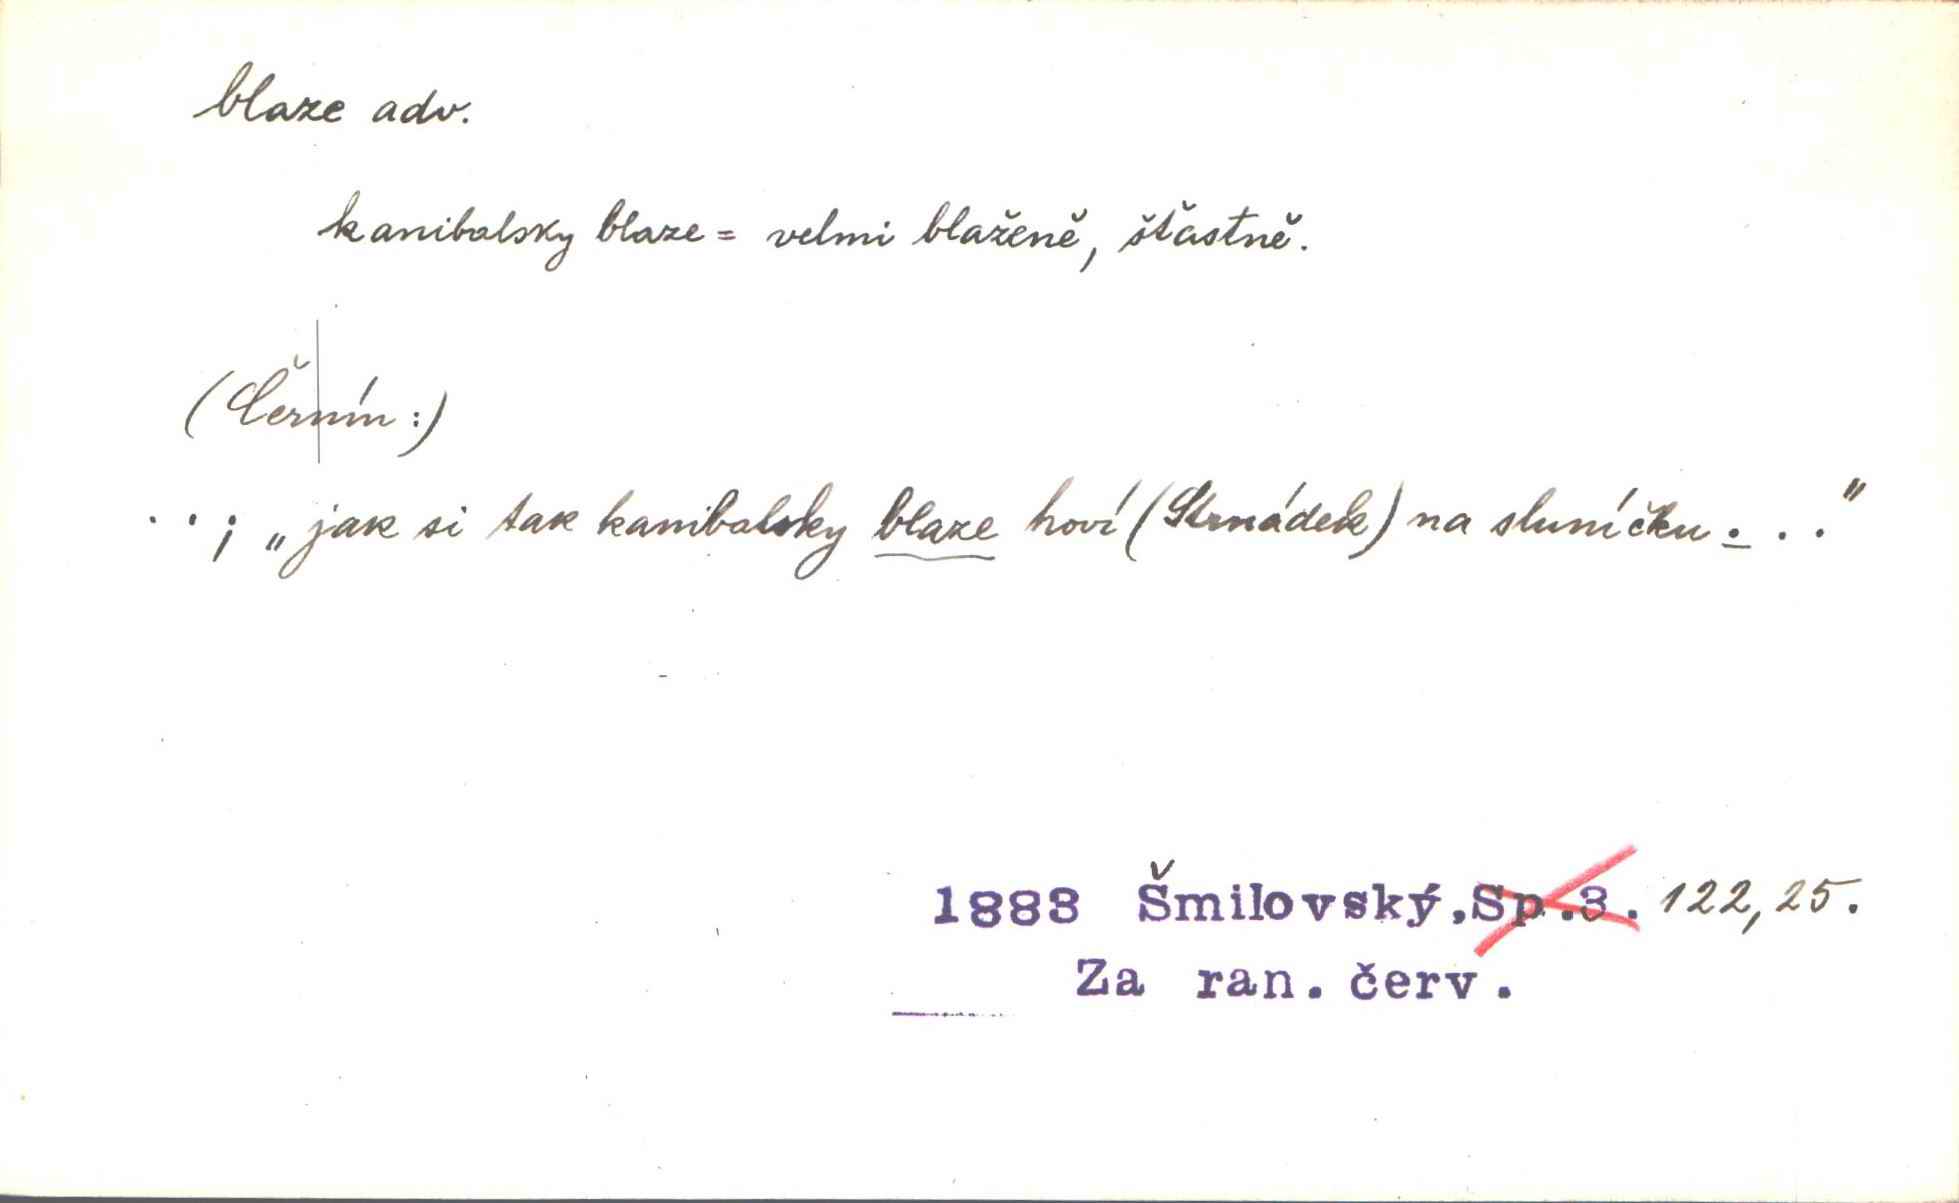 blaze adv.
kanibalsky blaze = velmi blaženě, šťastně.
(Černín :)
. . ; „jak si tak kanibalsky blaze hoví (Strnádek) na sluníčku . . ."
1883 Šmilovský, Sp.3. 122,25.
Za ran. červ.